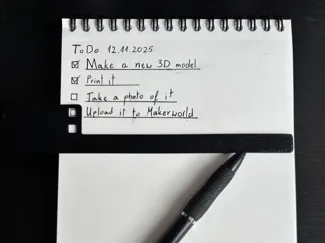 ToDo 12.11.2025
Make a new 3D model
Print it
Take a photo of it
Upload it to Makerworld